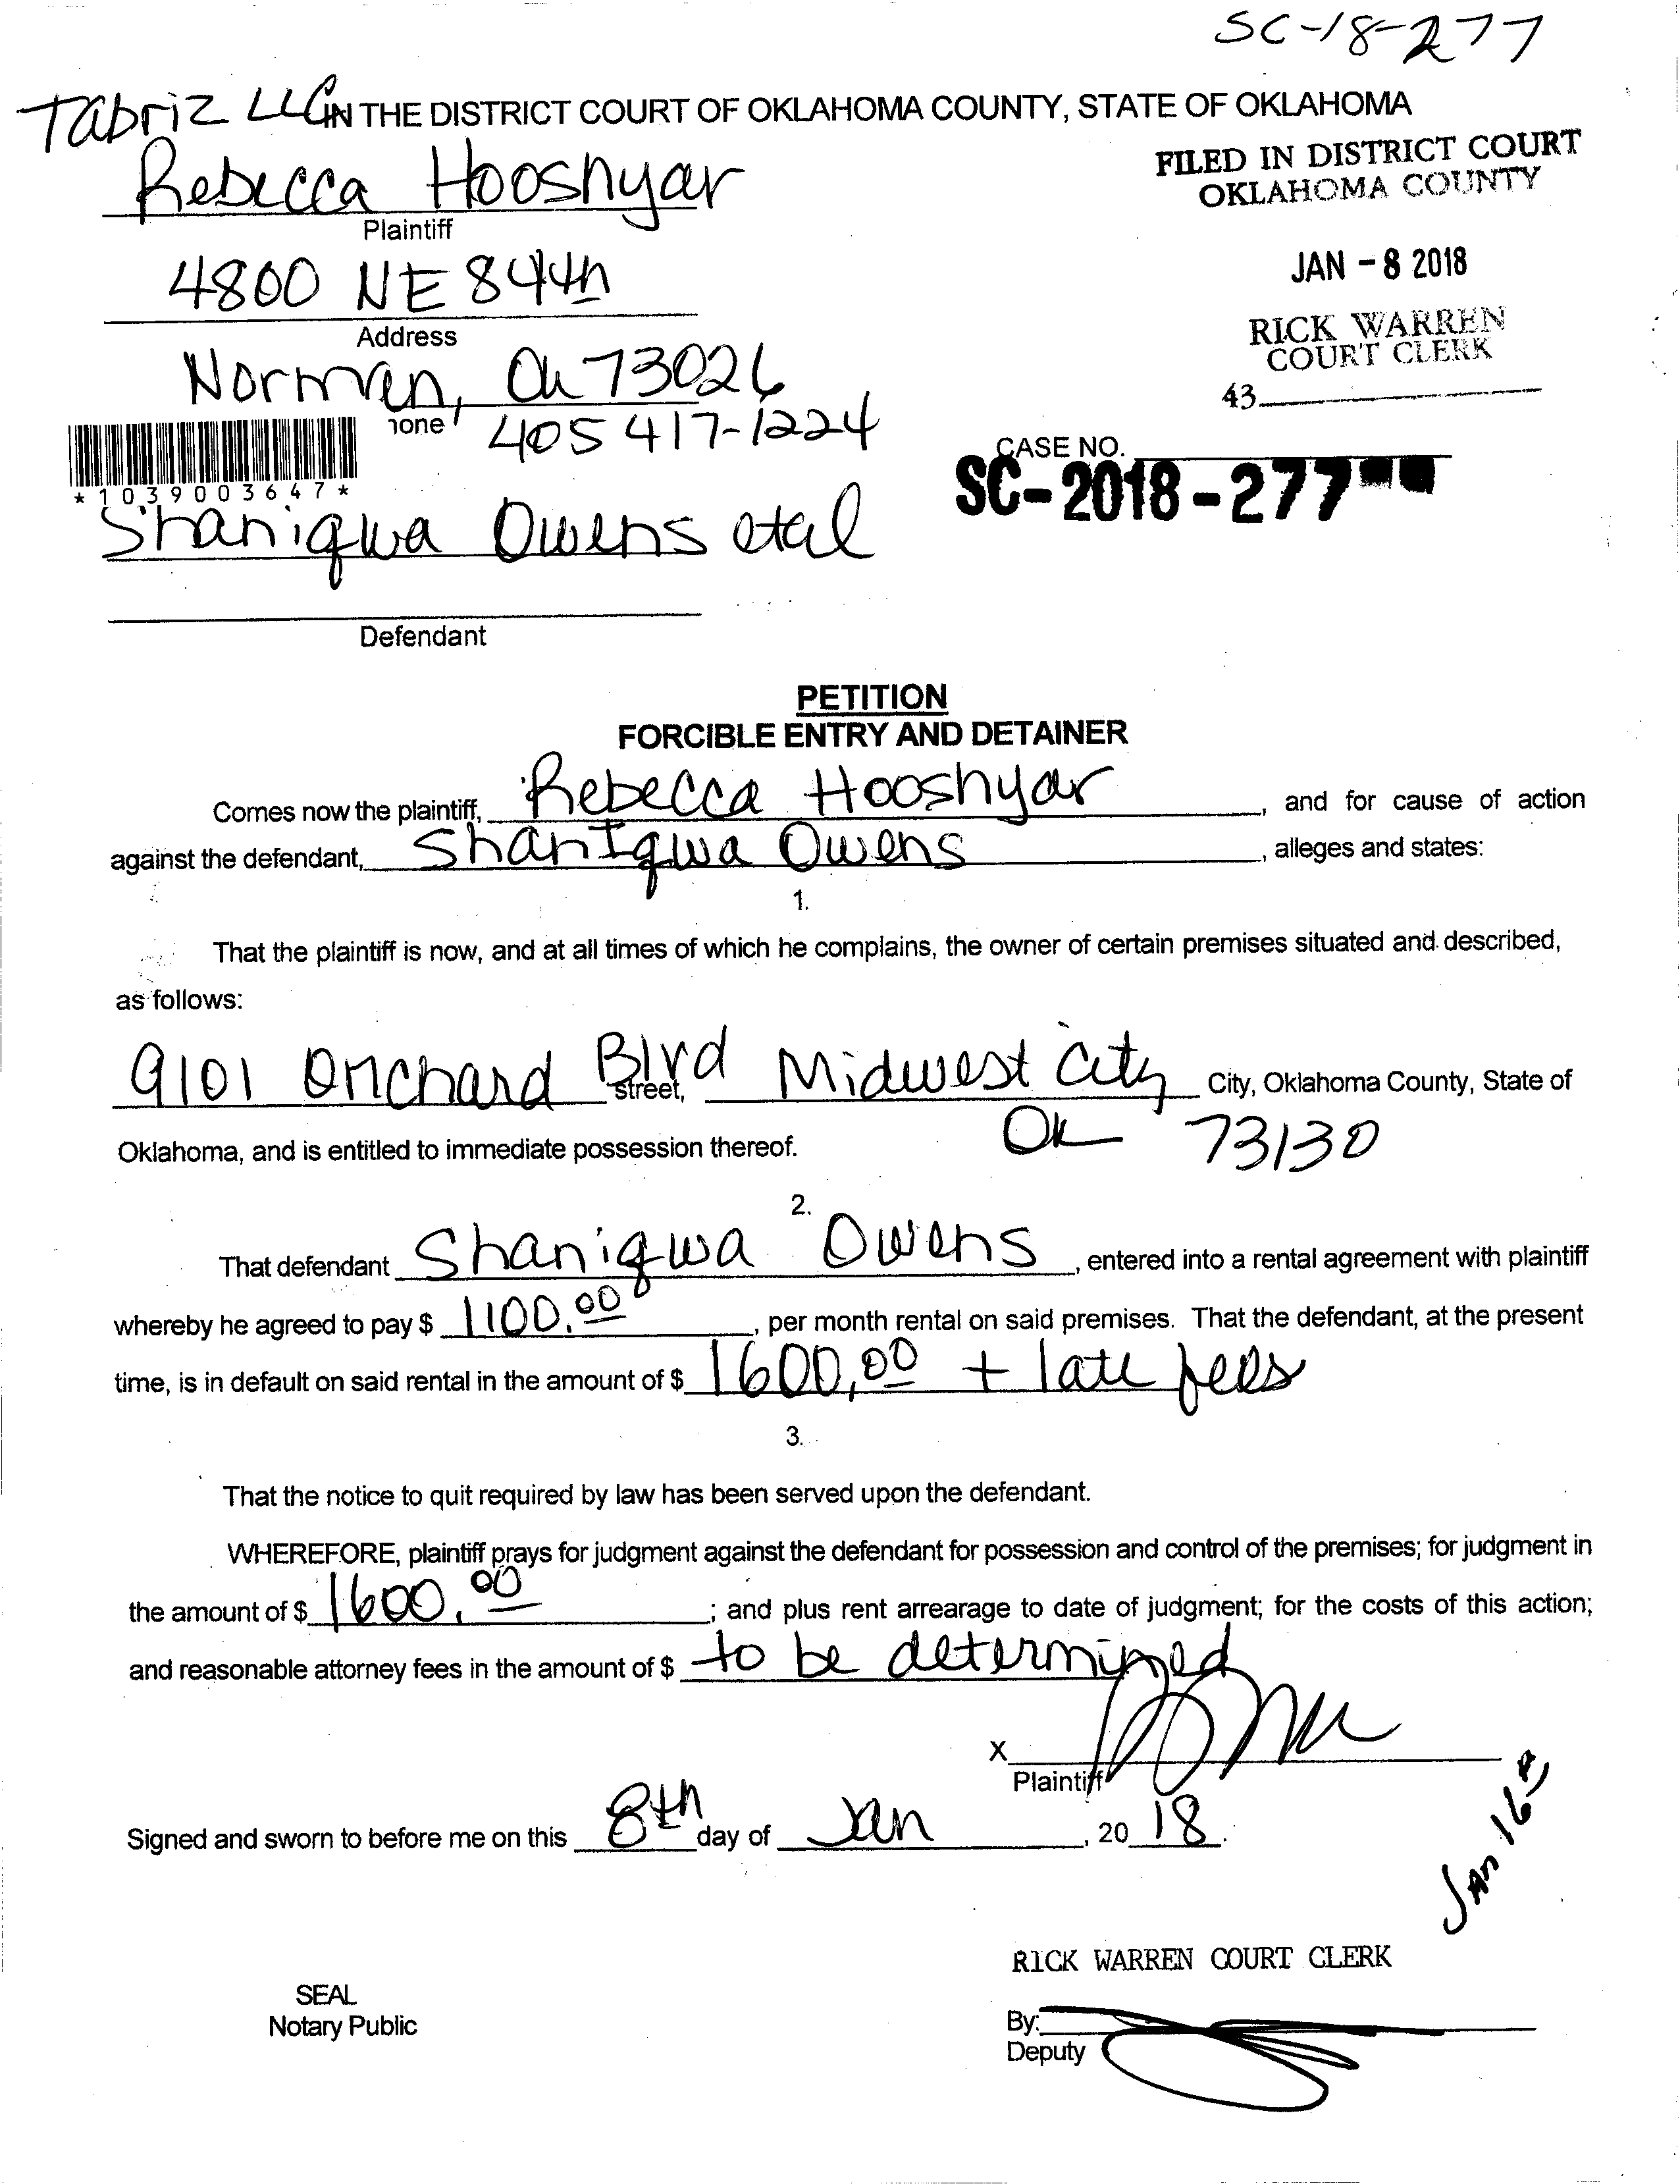 SC-18-277
Tabriz LLC IN THE DISTRICT COURT OF OKLAHOMA COUNTY, STATE OF OKLAHOMA
FILED IN DISTRICT COURT
OKLAHOMA COUNTY
Rebecca Hooshyar
Plaintiff
JAN - 8 2018
4800 NE 84th
Address
RICK WARREN
COURT CLERK
Norman, Ok 73026
43
hone 405 417-1224
CASE NO.
SC-2018-277
*1039003647*
Shaniqwa Owens etal
Defendant
PETITION
FORCIBLE ENTRY AND DETAINER
Comes now the plaintiff, Rebecca Hooshyar, and for cause of action
against the defendant, ShanIqwa Owens, alleges and states:
1.
That the plaintiff is now, and at all times of which he complains, the owner of certain premises situated and described,
as follows:
9101 Orchard Blvd Street, Midwest City City, Oklahoma County, State of
Oklahoma, and is entitled to immediate possession thereof. OK 73130
2.
That defendant Shaniqwa Owens, entered into a rental agreement with plaintiff
whereby he agreed to pay $ 1100.00, per month rental on said premises. That the defendant, at the present
time, is in default on said rental in the amount of $ 1600,00 + late fees
3.
That the notice to quit required by law has been served upon the defendant.
WHEREFORE, plaintiff prays for judgment against the defendant for possession and control of the premises; for judgment in
the amount of $ 1600.00; and plus rent arrearage to date of judgment; for the costs of this action;
and reasonable attorney fees in the amount of $ to be determined
X
Plaintiff
Signed and sworn to before me on this 8th day of Jan, 20 18.
Jan 16
RICK WARREN COURT CLERK
SEAL
Notary Public
By:
Deputy